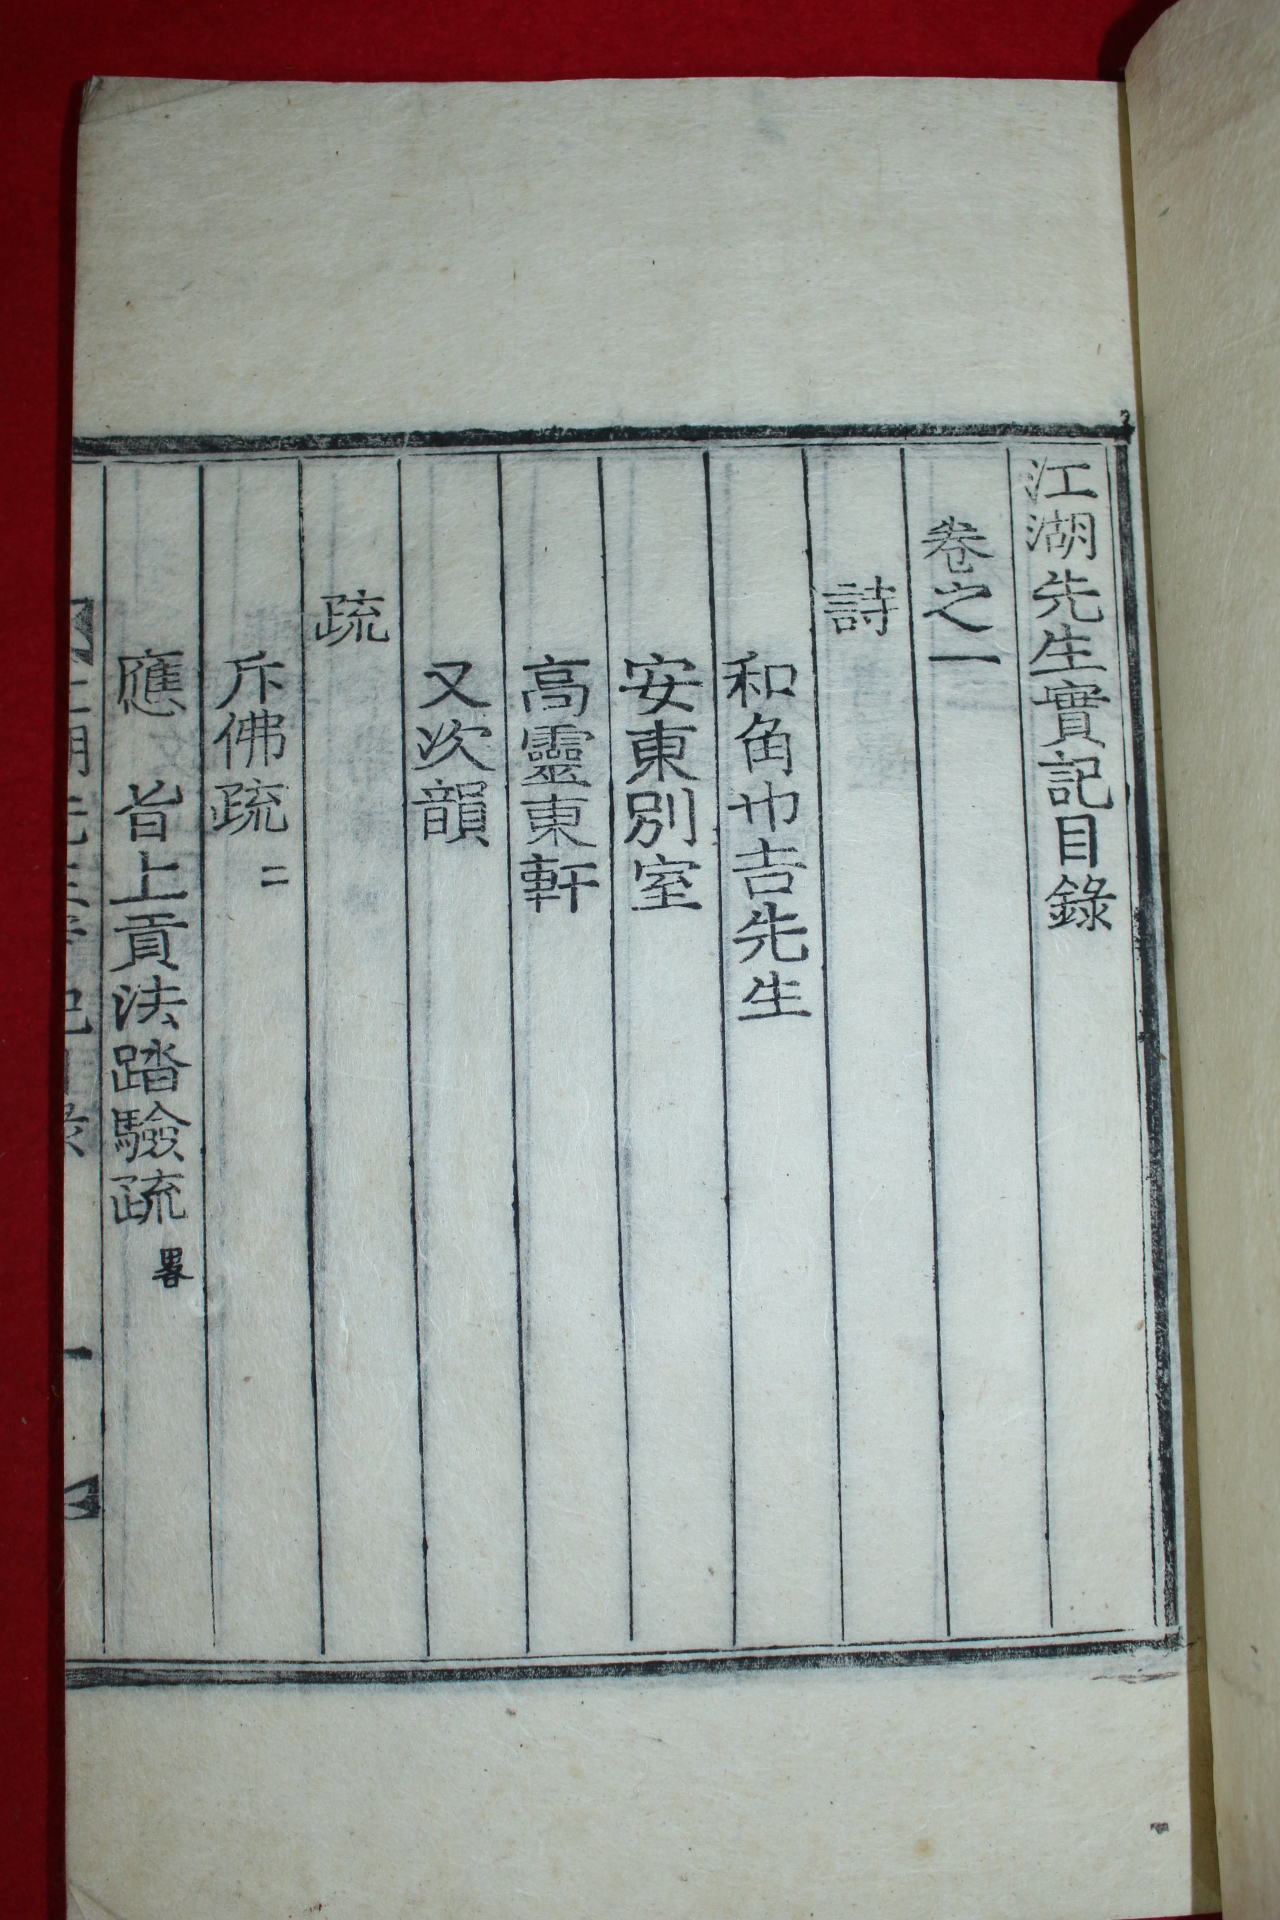 江湖先生實記目錄
卷之一
詩
和角巾吉先生
安東別室
高靈東軒
又次韻
疏
斥佛疏 二
應 旨上貢法踏驗疏 畧